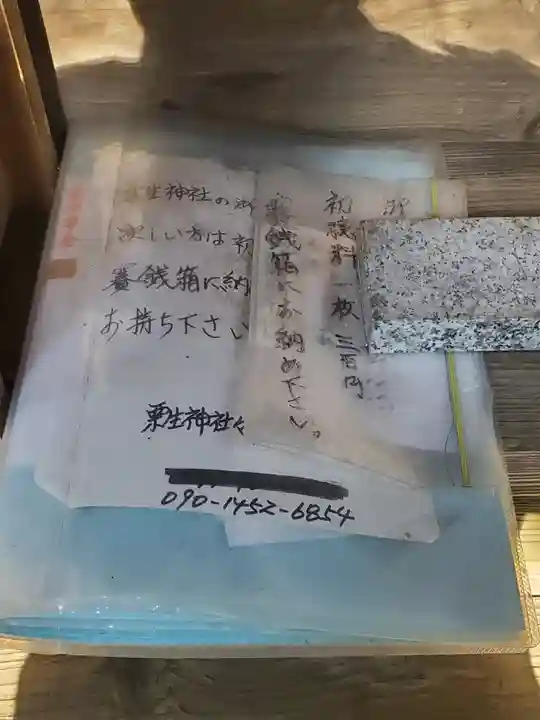 粟生神社の御
欲しい方は初
賽銭箱に納
お持ち下さい
粟生神社々
090-1452-6854
御
初穂料 一枚 三百円
賽銭箱にお納め下さい。